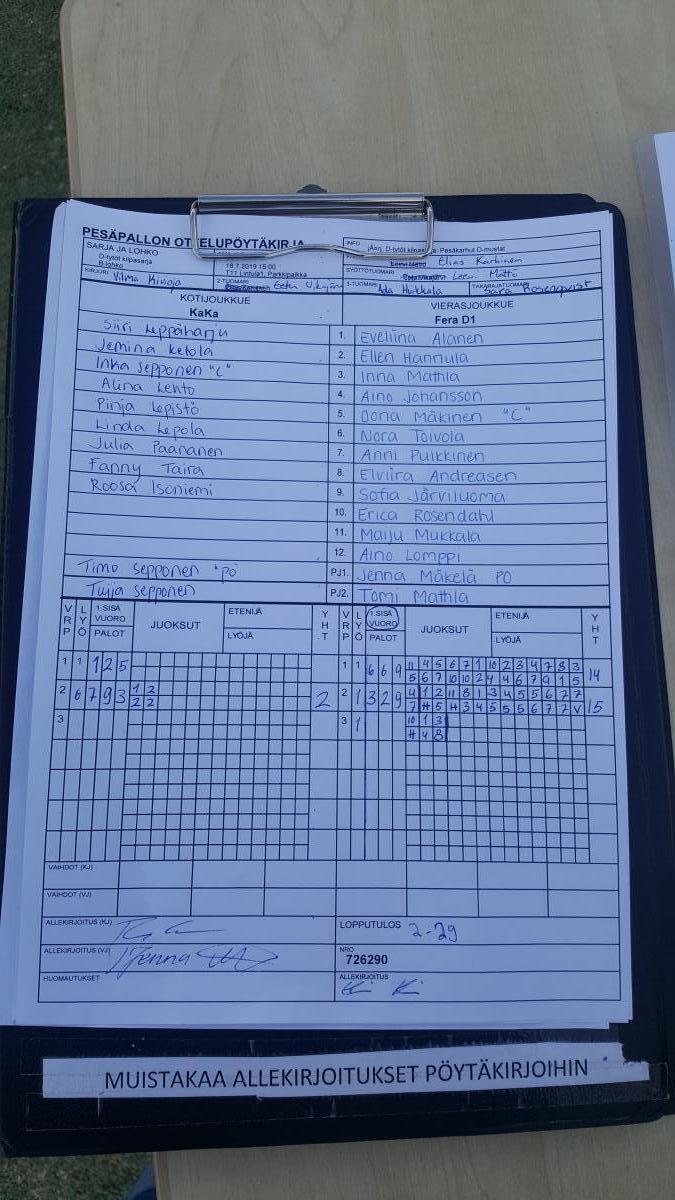 PESÄPALLON OTTELUPÖYTÄKIRJA
SARJA JA LOHKO
D-tytöt kilpasarja
B-lohko
18.7.2019 15:00
T11 Lintula1, Parkkipaikka
INFO
D-tytöt kilpasarja: Pesäkarhut D-mustat
Elias Karhinen
SYÖTTÖTUOMARI
Leevi Mättö
KIRJURI Vilma Kinoja
2-TUOMARI Eetu
3-TUOMARI Ada Huikkala
TAKARAJATUOMARI Sara Rosenqvist
KOTIJOUKKUE
KaKa
VIERASJOUKKUE
Fera D1
Siiri Leppäharju 1. Eveliina Alanen
Jemina Ketola 2. Ellen Hannula
Inka Sepponen "C" 3. Inna Mathla
Alina Lehto 4. Aino Johansson
Pinja Lepistö 5. Oona Mäkinen "C"
Linda Lepola 6. Nora Toivola
Julia Paananen 7. Anni Pulkkinen
Fanny Taira 8. Elviira Andreasen
Roosa Isoniemi 9. Sofia Järviluoma
10. Erica Rosendahl
11. Maiju Mukkala
12. Aino Lomppi
Timo Sepponen "PO PJ1. Jenna Mäkelä PO
Tuija Sepponen PJ2. Tomi Mathla
VRP LYÖ 1.SISÄ VUORO PALOT JUOKSUT ETENIJÄ LYÖJÄ YHT VRP LYÖ 1.SISÄ VUORO PALOT JUOKSUT ETENIJÄ LYÖJÄ YHT
1 1 1 2 5 1 1 6 6 9 11 4 5 6 7 1 10 2 3 4 7 8 3 14
5 6 7 10 10 2 4 4 6 7 9 1 5
2 6 7 9 3 1 2 2 2 1 3 2 9 4 1 2 11 8 1 3 4 5 5 6 7 7 15
2 2 7 # 5 # 3 4 5 5 5 6 7 7 V
3 3 1 10 1 3
# 4 8
VAIHDOT (KJ)
VAIHDOT (VJ)
ALLEKIRJOITUS (KJ)
LOPPUTULOS 2-29
ALLEKIRJOITUS (VJ) Jenna
NRO
726290
HUOMAUTUKSET
ALLEKIRJOITUS
MUISTAKAA ALLEKIRJOITUKSET PÖYTÄKIRJOIHIN